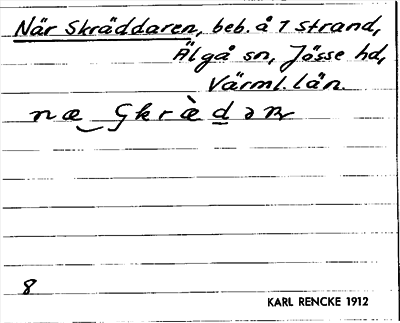 När Skräddaren, beb. å 1 Strand,
Älgå sn, Jösse hd,
Värml. län.
næ‿ ςkræ̀d̲əɴ
8
KARL RENCKE 1912